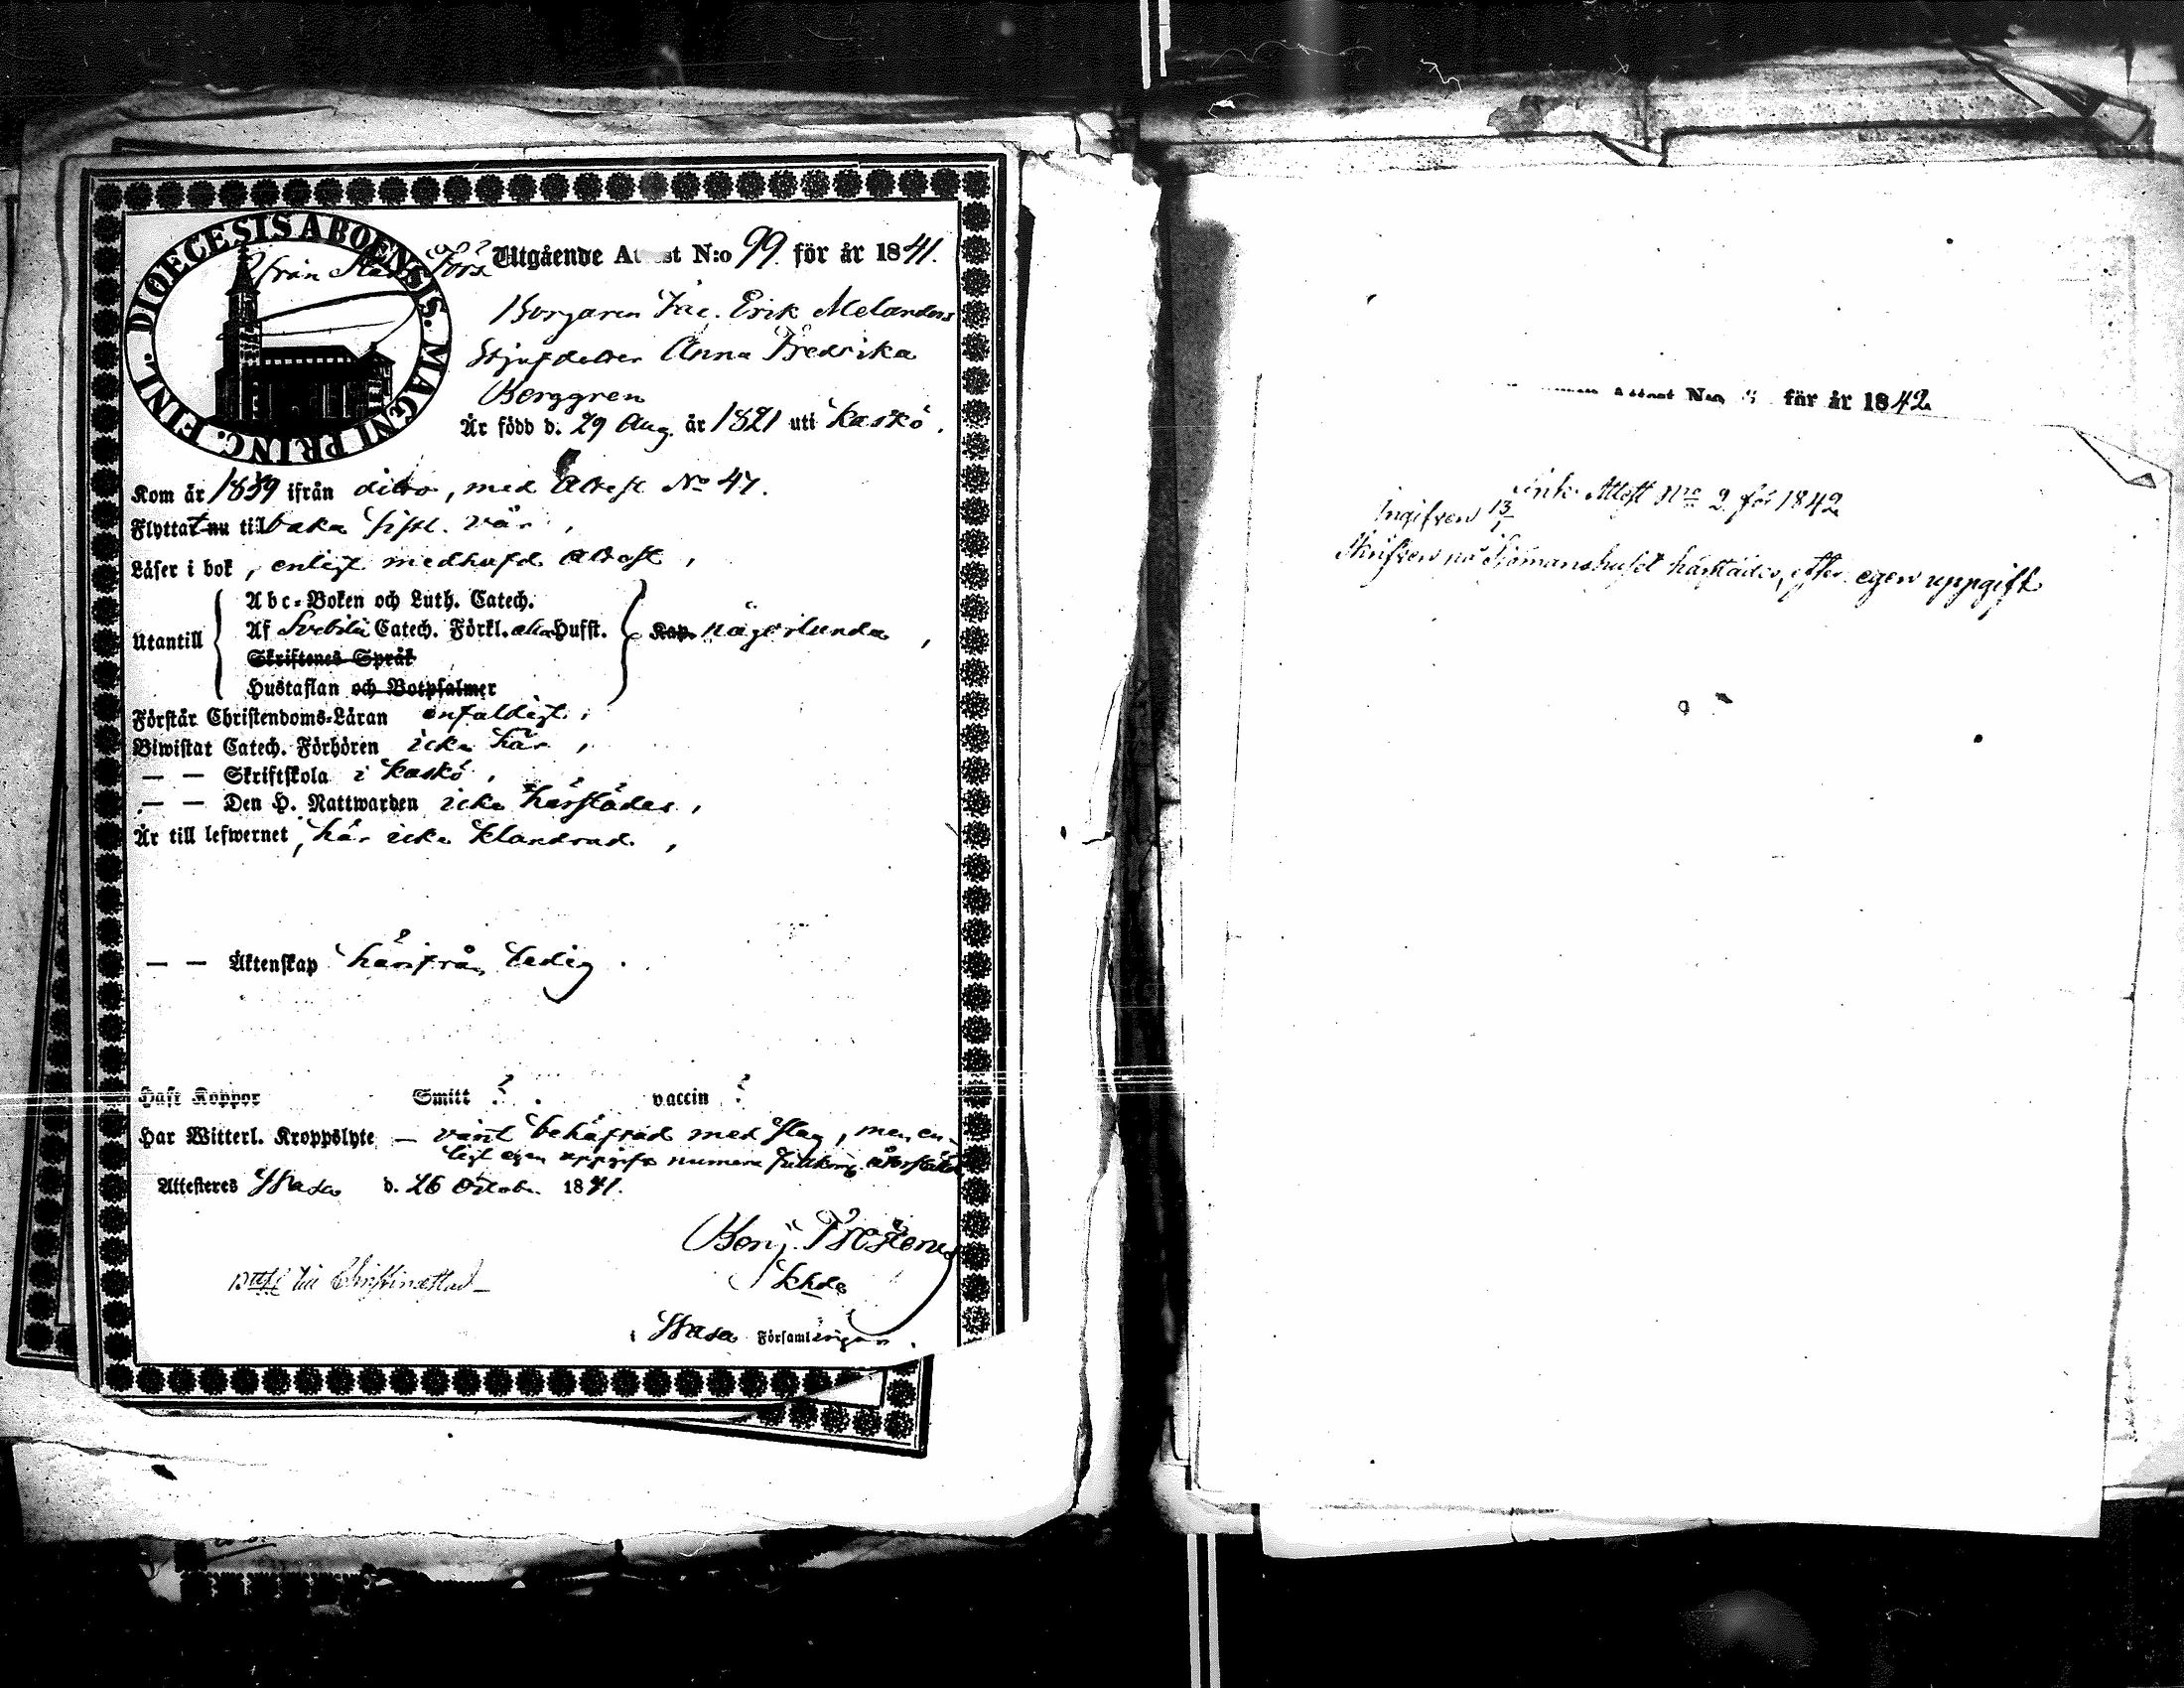 DIOECESIS ABOENSIS. MAGNI PRINC. FINL.
från
Utgående Attest N:o 99. för år 1841.
Borgaren Jac. Erik Melanders
Stjufdotter Anna Fredrika
Berggren
Är född d. 29 Aug. år 1821 uti Kaskö.
Kom år 1839 ifrån ditto, med Attest No 47.
Flyttat nu tillbaka sistl. vår,
Läser i bok, enligt medhafd Attest,
Utantill
Abc-Boken och Luth. Catech.
Af Svebilii Catech. Förkl. Hufst.
Skriftenes Språk
Hustaflan och Botpsalmer
Kap. någorlunda,
Förstår Christendoms-Läran enfaldigt,
Biwistat Catech. Förhören icke här,
— — Skriftskola i Kaskö,
— — Den H. Nattwarden icke härstädes,
Är till lefwernet, här icke klandrad,
— — Äktenskap härifrån ledig.
Haft Koppor Smitt ? vaccin ?
Har Witterl. Kroppslyte — varit behäftad med slag, men en-
ligt egen uppgift numera återstäld
Attesteres Wasa d. 26 Octob. 1841.
Benj.
Khde
till Christinestad
i Wasa Församlingen.
Attest N:o för år 1842
Ink. Attest Nro 2 för 1842
Ingifven 13/1
Skrifven på Sjömanshuset härstädes, efter egen uppgift